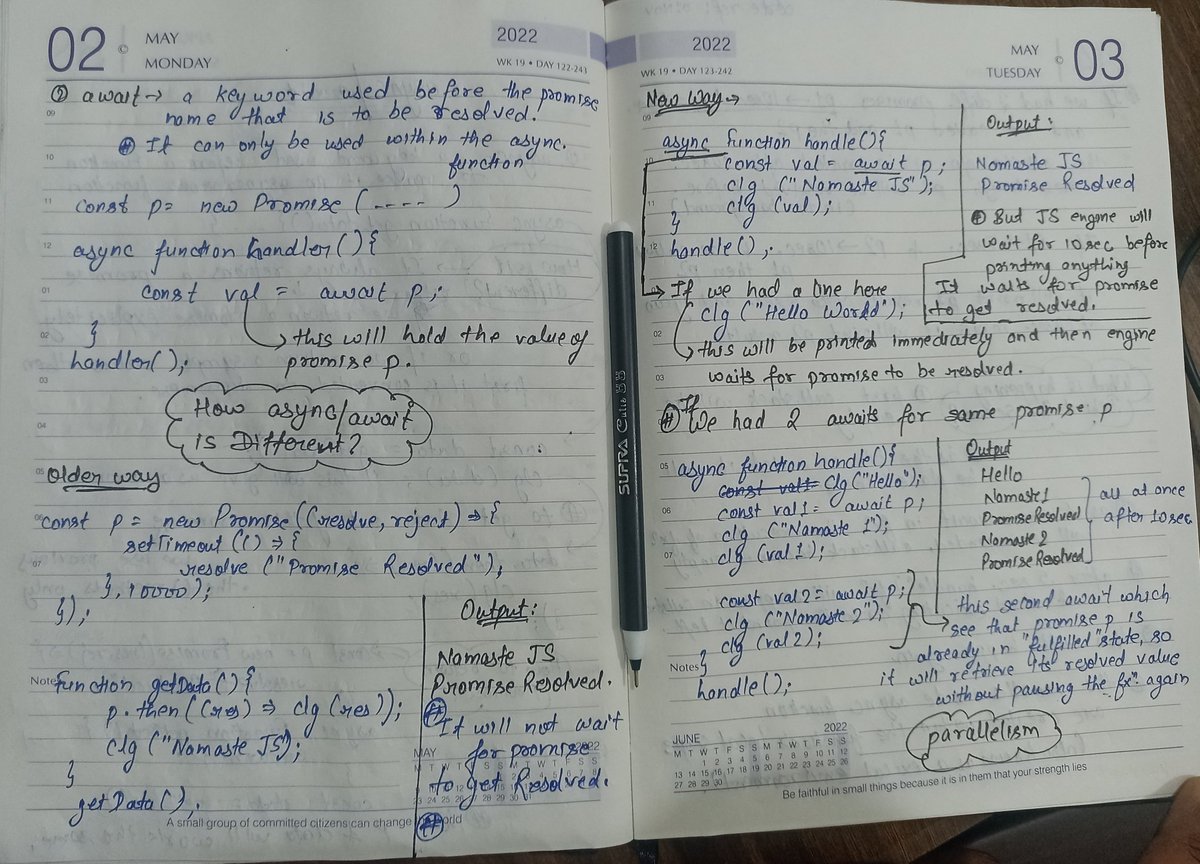 02
©
MAY
MONDAY
2022
WK 19 • DAY 122-243
② await → a keyword used before the promise
name that is to be resolved.
# It can only be used within the async.
function
const p = new Promise (---- )
async function handler(){
const val = await p;
↳ this will hold the value of
promise p.
}
handler();
How async/await
is Different?
Older way
const p = new Promise((resolve, reject) => {
setTimeout (() => {
resolve ("Promise Resolved");
}, 10000);
});
function getData() {
p.then((res) => clg (res));
clg ("Namaste JS);
}
getData();
Output:
Namaste JS
Promise Resolved.
#
It will not wait
for promise
to get Resolved.
#
A small group of committed citizens can change
2022
WK 19 • DAY 123-242
MAY
TUESDAY
©
03
New Way →
async function handle(){
const val = await p;
clg ("Namaste JS");
clg (val);
}
handle();
→ If we had a line here
clg ("Hello World");
↳ this will be printed immediately and then engine
waits for promise to be resolved.
Output:
Namaste JS
Promise Resolved
# But JS engine will
wait for 10 sec before
printing anything
It waits for promise
to get resolved.
# If
We had 2 awaits for same promise p
async function handle(){
const val1= clg ("Hello");
const val1 = await p;
clg ("Namaste 1");
clg (val1);
const val2 = await p;
clg ("Namaste 2");
clg (val2);
}
handle();
Output
Hello
Namaste 1
Promise Resolved
Namaste 2
Promise Resolved
all at once
after 10 sec
this second await which
see that promise p is
already in "fulfilled" state, so
it will retrieve its resolved value
without pausing the fxⁿ again
parallelism
Notes
JUNE
2022
M T W T F S S M T W T F S S
1 2 3 4 5 6 7 8 9 10 11 12
13 14 15 16 17 18 19 20 21 22 23 24 25 26
27 28 29 30
Be faithful in small things because it is in them that your strength lies
SUPRA